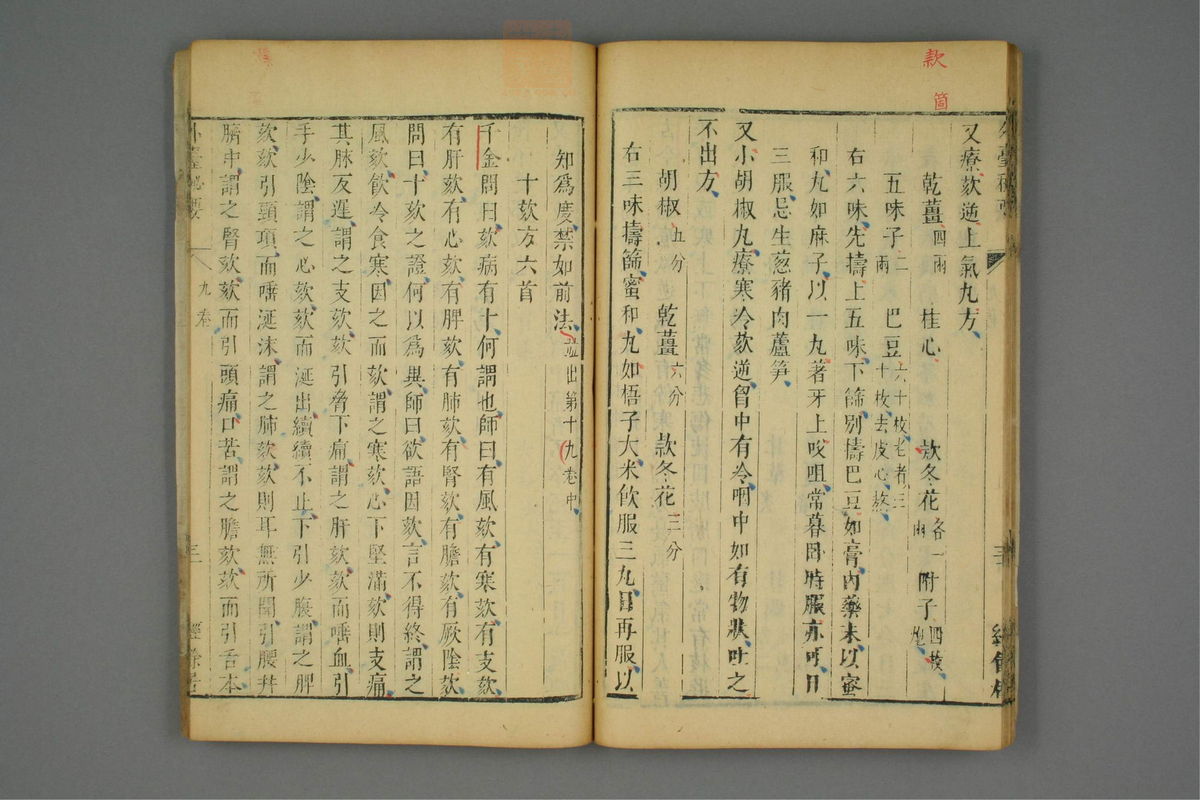 款
箇
又療欬逆上氣丸方
乾薑四兩 桂心 款冬花各一兩 附子四枚炮
五味子二兩 巴豆六十枚老者三十枚去皮心熬
右六味先擣上五味下篩別擣巴豆如膏內藥末以蜜
和丸如麻子以一丸著牙上咬咀常暮臥時服亦可日
三服忌生葱豬肉蘆笋
又小胡椒丸療寒冷欬逆胷中有冷咽中如有物狀吐之
不出方
胡椒五分 乾薑六分 款冬花三分
右三味擣篩蜜和丸如梧子大米飲服三丸日再服以
知爲度禁如前法並出第十九卷中
十欬方六首
千金問曰欬病有十何謂也師曰有風欬有寒欬有支欬
有肝欬有心欬有脾欬有肺欬有腎欬有膽欬有厥陰欬
問曰十欬之證何以爲異師曰欲語因欬言不得終謂之
風欬飲冷食寒因之而欬謂之寒欬心下堅滿欬則支痛
其脉反遲謂之支欬欬引脅下痛謂之肝欬欬而唾血引
手少陰謂之心欬欬而涎出續續不止下引少腹謂之脾
欬欬引頸項而唾涎沫謂之肺欬欬則耳無所聞引腰幷
臍中謂之腎欬欬而引頭痛口苦謂之膽欬欬而引舌本
外臺秘要
九卷
三
經餘居